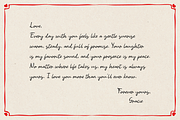 Love,
Every day with you feels like a gentle sunrise
warm, steady, and full of promise. Your laughter
is my favorite sound, and your presence is my peace.
No matter where life takes us, my heart is always
yours. I love you more than you'll ever know.
Forever yours,
Gracie